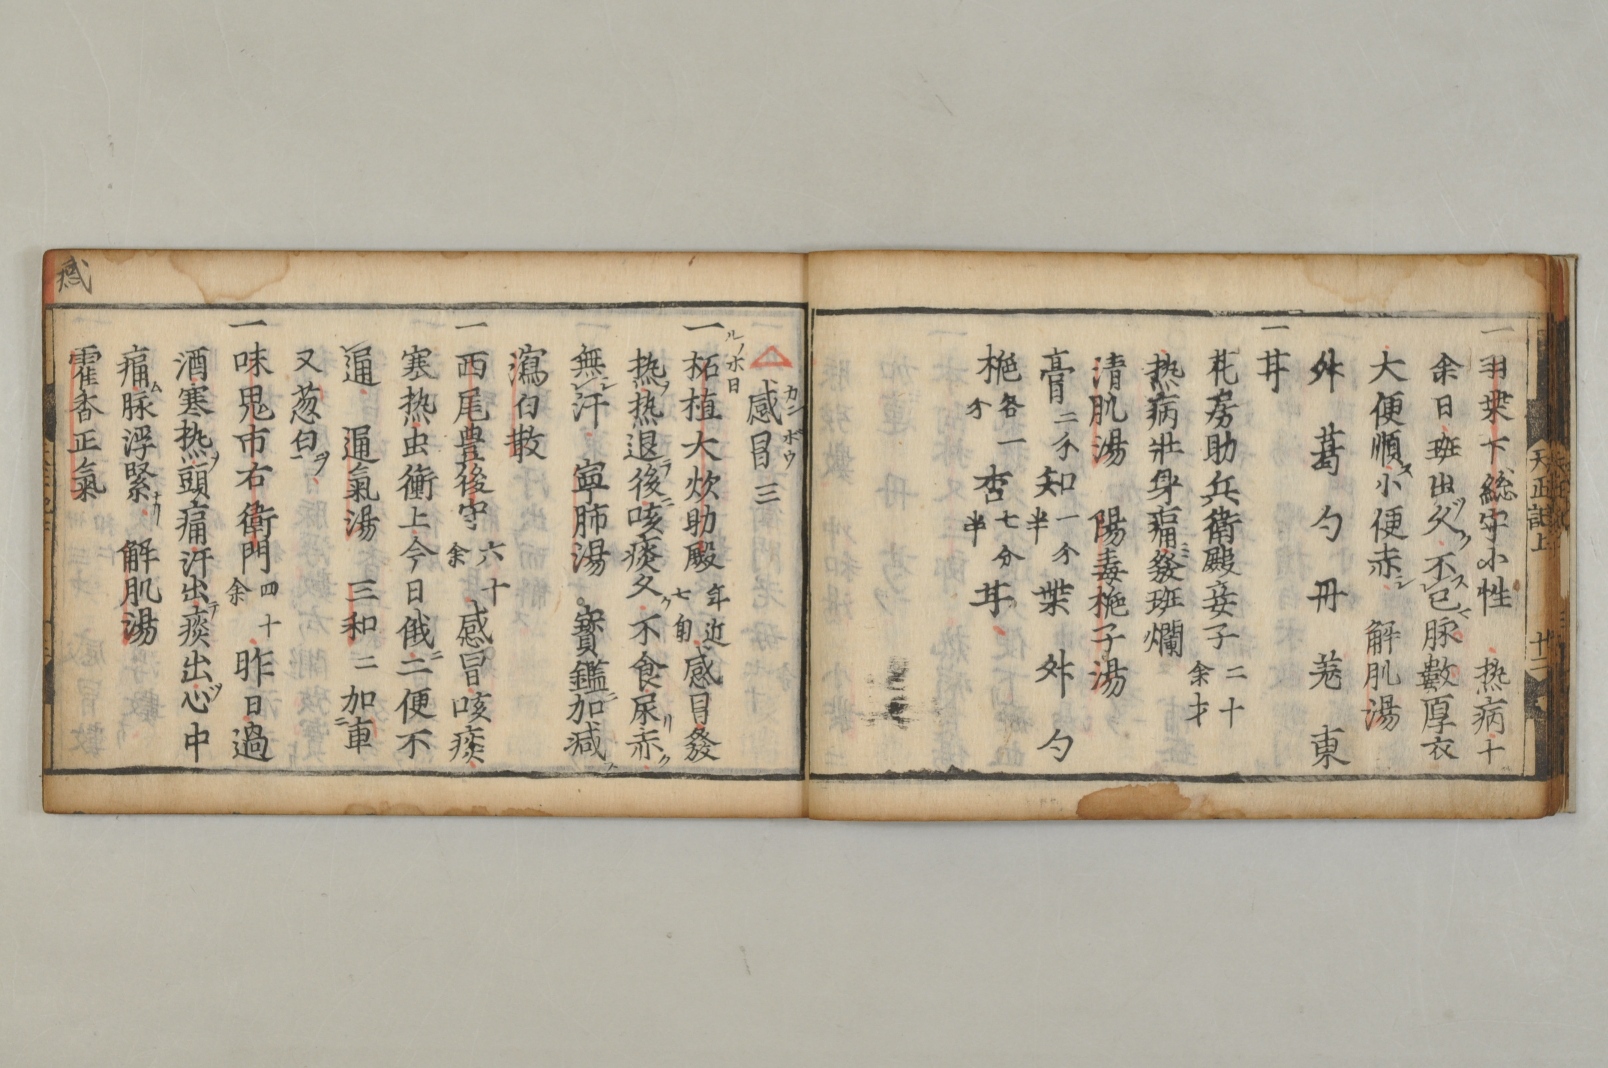 一 羽柴下総守小性 热病十
余日班出久不已脉數厚衣
大便順小便赤 解肌湯
舛 葛 勺 丹 荛 東
芉
一 札房助兵衛殿妾子二十余才
热病壮身痛發班爛
清肌湯 陽毒梔子湯
膏二分知一分半柴 舛 勺
梔各一分 杏七分半 芉
天正記上 十二
感冒三
カンボウ
一 柘植大炊助殿年近七旬感冒發
ルノ木日
热热退後咳痰久不食尿赤
無汗 寧肺湯 寳鑑加减
瀉白散
一 西尾豊後守六十余感冒咳痰
寒热虫衝上今日俄二便不
通 通氣湯 三和二加車
又葱白
一 味鬼市右衛門四十余昨日過
酒寒热頭痛汗出痰出心中
痛脉浮緊 解肌湯
霍香正氣
感